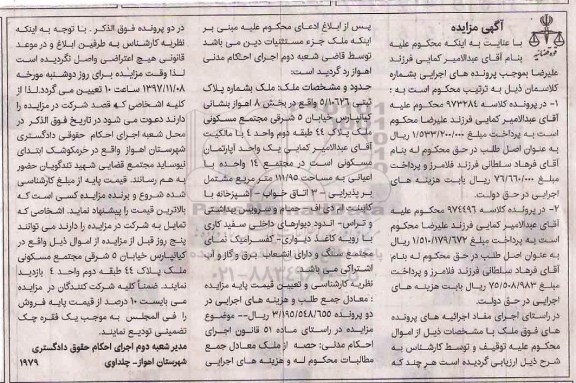 آگهی مزایده
با عنایت به اینکه محکوم علیه
بنام آقای عبدالامیر کمایی فرزند
علیرضا بموجب پرونده های اجرایی بشماره
کلاسمان ذیل به ترتیب محکوم است به :
۱- در پرونده کلاسه ۹۷۳۲۸۴ محکوم علیه
آقای عبدالامیر کمایی فرزند علیرضا محکوم
است به پرداخت مبلغ ۱/۵۳۳/۲۰۰/۰۰۰ ریال
به عنوان اصل طلب در حق محکوم له بنام
آقای فرهاد سلطانی فرزند فلامرز و پرداخت
مبلغ ۷۶/۶۶۰/۰۰۰ ریال بابت هزینه های
اجرایی در حق دولت.
۲- در پرونده کلاسه ۹۷۴۴۹۶ محکوم علیه
آقای عبدالامیر کمایی فرزند علیرضا محکوم
است به پرداخت مبلغ ۱/۵۱۰/۱۷۹/۶۷۷ ریال
به عنوان اصل طلب در حق محکوم له بنام
آقای فرهاد سلطانی فرزند فلامرز و پرداخت
مبلغ ۷۵/۵۰۸/۹۸۳ ریال بابت هزینه های
اجرایی در حق دولت.
در راستای اجرای مفاد اجرائیه های پرونده
های فوق ملک با مشخصات ذیل از اموال
محکوم علیه توقیف و توسط کارشناس به
شرح ذیل ارزیابی گردیده است هر چند که
پس از ابلاغ ادعای محکوم علیه مبنی بر
اینکه ملک جزء مستثنیات دین می باشد
توسط قاضی شعبه دوم اجرای احکام مدنی
اهواز رد گردید است:
حدود و مشخصات ملک: ملک بشماره پلاک
ثبتی ۵/۱۰۶۲۶ واقع در بخش ۸ اهواز بنشانی
کیانپارس خیابان ۵ شرقی مجتمع مسکونی
ملک پلاک ۴۴ طبقه دوم واحد ۴ با مالکیت
آقای عبدالامیر کمایی یک واحد آپارتمان
مسکونی است در مجتمع ۱۴ واحده با
اعیانی به مساحت ۱۱۱/۹۵ متر مربع مشتمل
بر پذیرایی - ۳ اتاق خواب - آشپزخانه با
کابینت ام دی اف- حمام و سرویس بهداشتی
و تراس- اندود دیوارهای داخلی سفید کاری
با رویه کاغذ دیواری- کفسرامیک نمای
مجتمع سنگ و دارای انشعاب برق و گاز و آب
اشتراکی می باشد.
نظریه کارشناسی و تعیین قیمت پایه مزایده
: معادل جمع طلب و هزینه های اجرایی در
دو پرونده ۳/۱۹۵/۵۴۸/۶۵۵ ریال-- موضوع
مزایده در راستای ماده ۵۱ قانون اجرای
احکام مدنی: حصه از ملک معادل جمع
مطالبات محکوم له و هزینه های اجرایی
در دو پرونده فوق الذکر . با توجه به اینکه
نظریه کارشناس به طرفین ابلاغ و در موعد
قانونی هیچ اعتراضی واصل نگردیده است
لذا وقت مزایده برای روز دوشنبه مورخه
۱۳۹۷/۱۱/۰۸ ساعت ۱۰ تعیین می گردد لذا از
کلیه اشخاصی که قصد شرکت در مزایده را
دارند دعوت می شود در تاریخ فوق الذکر در
محل شعبه اجرای احکام حقوقی دادگستری
شهرستان اهواز واقع در خرمکوشک ابتدای
نیوساید مجتمع قضایی شهید تندگویان حضور
به هم رسانند. قیمت پایه از مبلغ کارشناسی
شده شروع و برنده مزایده کسی است که
بالاترین قیمت را پیشنهاد نماید. اشخاصی که
تمایل به شرکت در مزایده را دارند می توانند
پنج روز قبل از مزایده از اموال ذیل واقع در
کیانپارس خیابان ۵ شرقی مجتمع مسکونی
ملک پلاک ۴۴ طبقه دوم واحد ۴ بازدید
نمایند. ضمناً کلیه شرکت کنندگان در مزایده
می بایست ۱۰ درصد از قیمت پایه فروش
را فی المجلس به موجب یک فقره چک
تضمینی تودیع نمایند.
مدیر شعبه دوم اجرای احکام حقوق دادگستری
شهرستان اهواز- چنداوی
۱۹۷۹